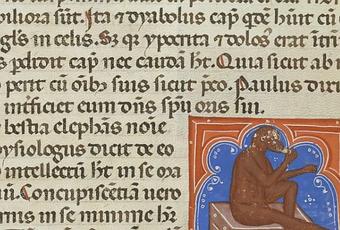 viliora sūt. Ita ⁊ dyabolus cap̄ qd̄ē h̄uit cū
gl̄s in celis. Sꝫ qꝛ ypocrita ⁊ dolos᷒ erat ītrī
s ꝑdidit cap̄ nec caudā h̄t. Quia sicut ab ī
perit cū oīb᷒ suis sicut p̄co. Paulus dixi
inficiet eum dn̄s sp̄u oris sui.
bestia elephās noīe
ysiologus dicit de eo
intellectū h̄t in se ma
ui. Concupiscētiā uero
rnis in se minime h̄t